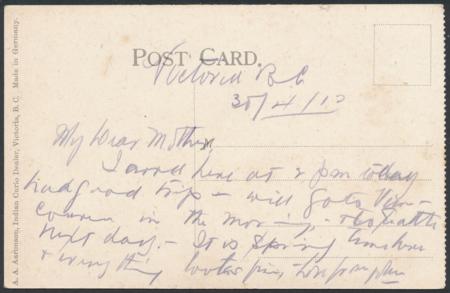 A. A. Aaronson, Indian Curio Dealer, Victoria, B. C. Made in Germany.
POST CARD.
Victoria B C
30/4/12
My Dear Mother
I arrived here at 2 pm today
had good trip - will go to Van-
couver in the morning, - & Seattle
next day. - It is Spring time here
& everything looks fine -